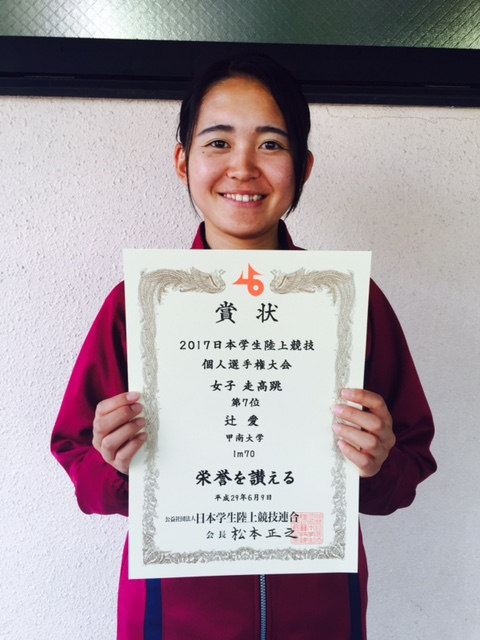 賞状
2017日本学生陸上競技
個人選手権大会
女子 走高跳
第7位
辻 愛
甲南大学
1m70
栄誉を讃える
平成29年6月9日
公益社団法人日本学生陸上競技連合
会長 松本正之